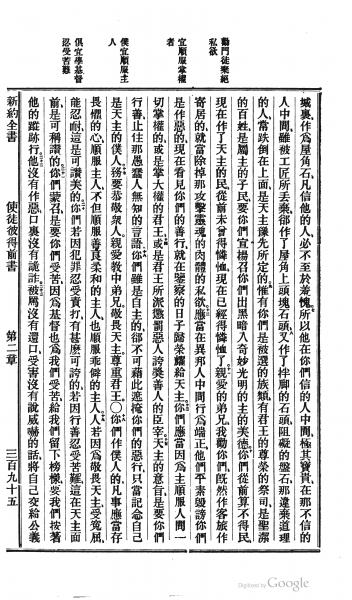 城裏作爲屋角石凡信他的人必不至於羞愧所以他在你們信的人中間極其寶貴在那不信的
人中間雖被工匠所丟棄卻作了屋角上頭塊石頭又作了絆脚的石頭阻礙的盤石那違棄道理
的人常跌倒在上面是天主豫先所定的惟有你們是被選的族類有君王的尊榮的祭司是聖潔
的百姓是屬主的子民要你們宣揚召你們出黑暗入奇妙光明的主的美德你們從前算不得民
現在作了天主的民從前未曾得憐恤現在已經得憐恤了親愛的弟兄我勸你們旣然作客旅作
寄居的就當除掉那攻擊靈魂的肉體的私欲應當在異邦人中間行爲端正他們平素毀謗你們
是作惡的現在看見你們的善行就在鑒察的日子歸榮耀給天主你們應當因爲主順服人間一
切掌權的或是掌大權的君王或是君王所派懲罰惡人誇獎善人的臣宰天主的意旨是要你們
行善止住那愚蠢人無知的言語你們雖是自主的卻不可藉此遮掩你們的惡行只當記念自己
是天主的僕人務要恭敬衆人親愛教中弟兄敬畏天主尊重君王〇你們作僕人的凡事應當存
畏懼的心順服主人不但順服善良柔和的主人也順服乖僻的主人人若因爲敬畏天主受寃屈
能忍耐這是可讚美的你們若因犯罪忍受責打有甚麽可誇的若因行善忍受苦難這在天主面
前是可稱讚的你們蒙召是要你們受苦因爲基督也爲我們受苦給我們留下榜樣要我們按著
他的蹤跡行他沒有作惡口裏沒有詭詐被罵沒有還口受害沒有說威嚇的話將自己交給公義
勸門徒棄絕
私欲
宜順服掌權
者
僕宜順服主
人
俱宜學基督
忍受苦難
新約全書 使徒彼得前書 第二章 三百九十五
Digitized by Google